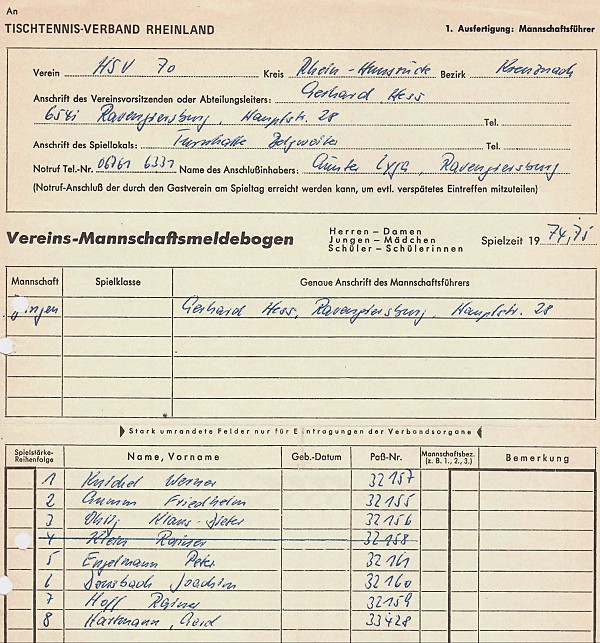 An
TISCHTENNIS-VERBAND RHEINLAND
1. Ausfertigung: Mannschaftsführer
Verein HSV 70 Kreis Rhein-Hunsrück Bezirk Kreuznach
Anschrift des Vereinsvorsitzenden oder Abteilungsleiters: Gerhard Hess
6541 Ravengiersburg, Hauptstr. 28 Tel.
Anschrift des Spiellokals: Turnhalle Tel.
Notruf Tel.-Nr. 06761 6331 Name des Anschlußinhabers: Günter Ravengiersburg
(Notruf-Anschluß der durch den Gastverein am Spieltag erreicht werden kann, um evtl. verspätetes Eintreffen mitzuteilen)
Vereins-Mannschaftsmeldebogen
Herren – Damen
Jungen – Mädchen
Schüler – Schülerinnen
Spielzeit 19 74,75
Mannschaft Spielklasse Genaue Anschrift des Mannschaftsführers
Jungen Gerhard Hess, Ravengiersburg, Hauptstr. 28
Stark umrandete Felder nur für Eintragungen der Verbandsorgane
Spielstärke-Reihenfolge Name, Vorname Geb.-Datum Paß-Nr. Mannschaftsbez. (z. B. 1., 2., 3.) Bemerkung
1 Werner 32157
2 Friedhelm 32155
3 Klaus-Dieter 32156
4 Klein Rainer 32158
5 Engelmann Peter 32161
6 Dönsbach Joachim 32160
7 Hoff Rainer 32159
8 Hartmann, Gerd 33428